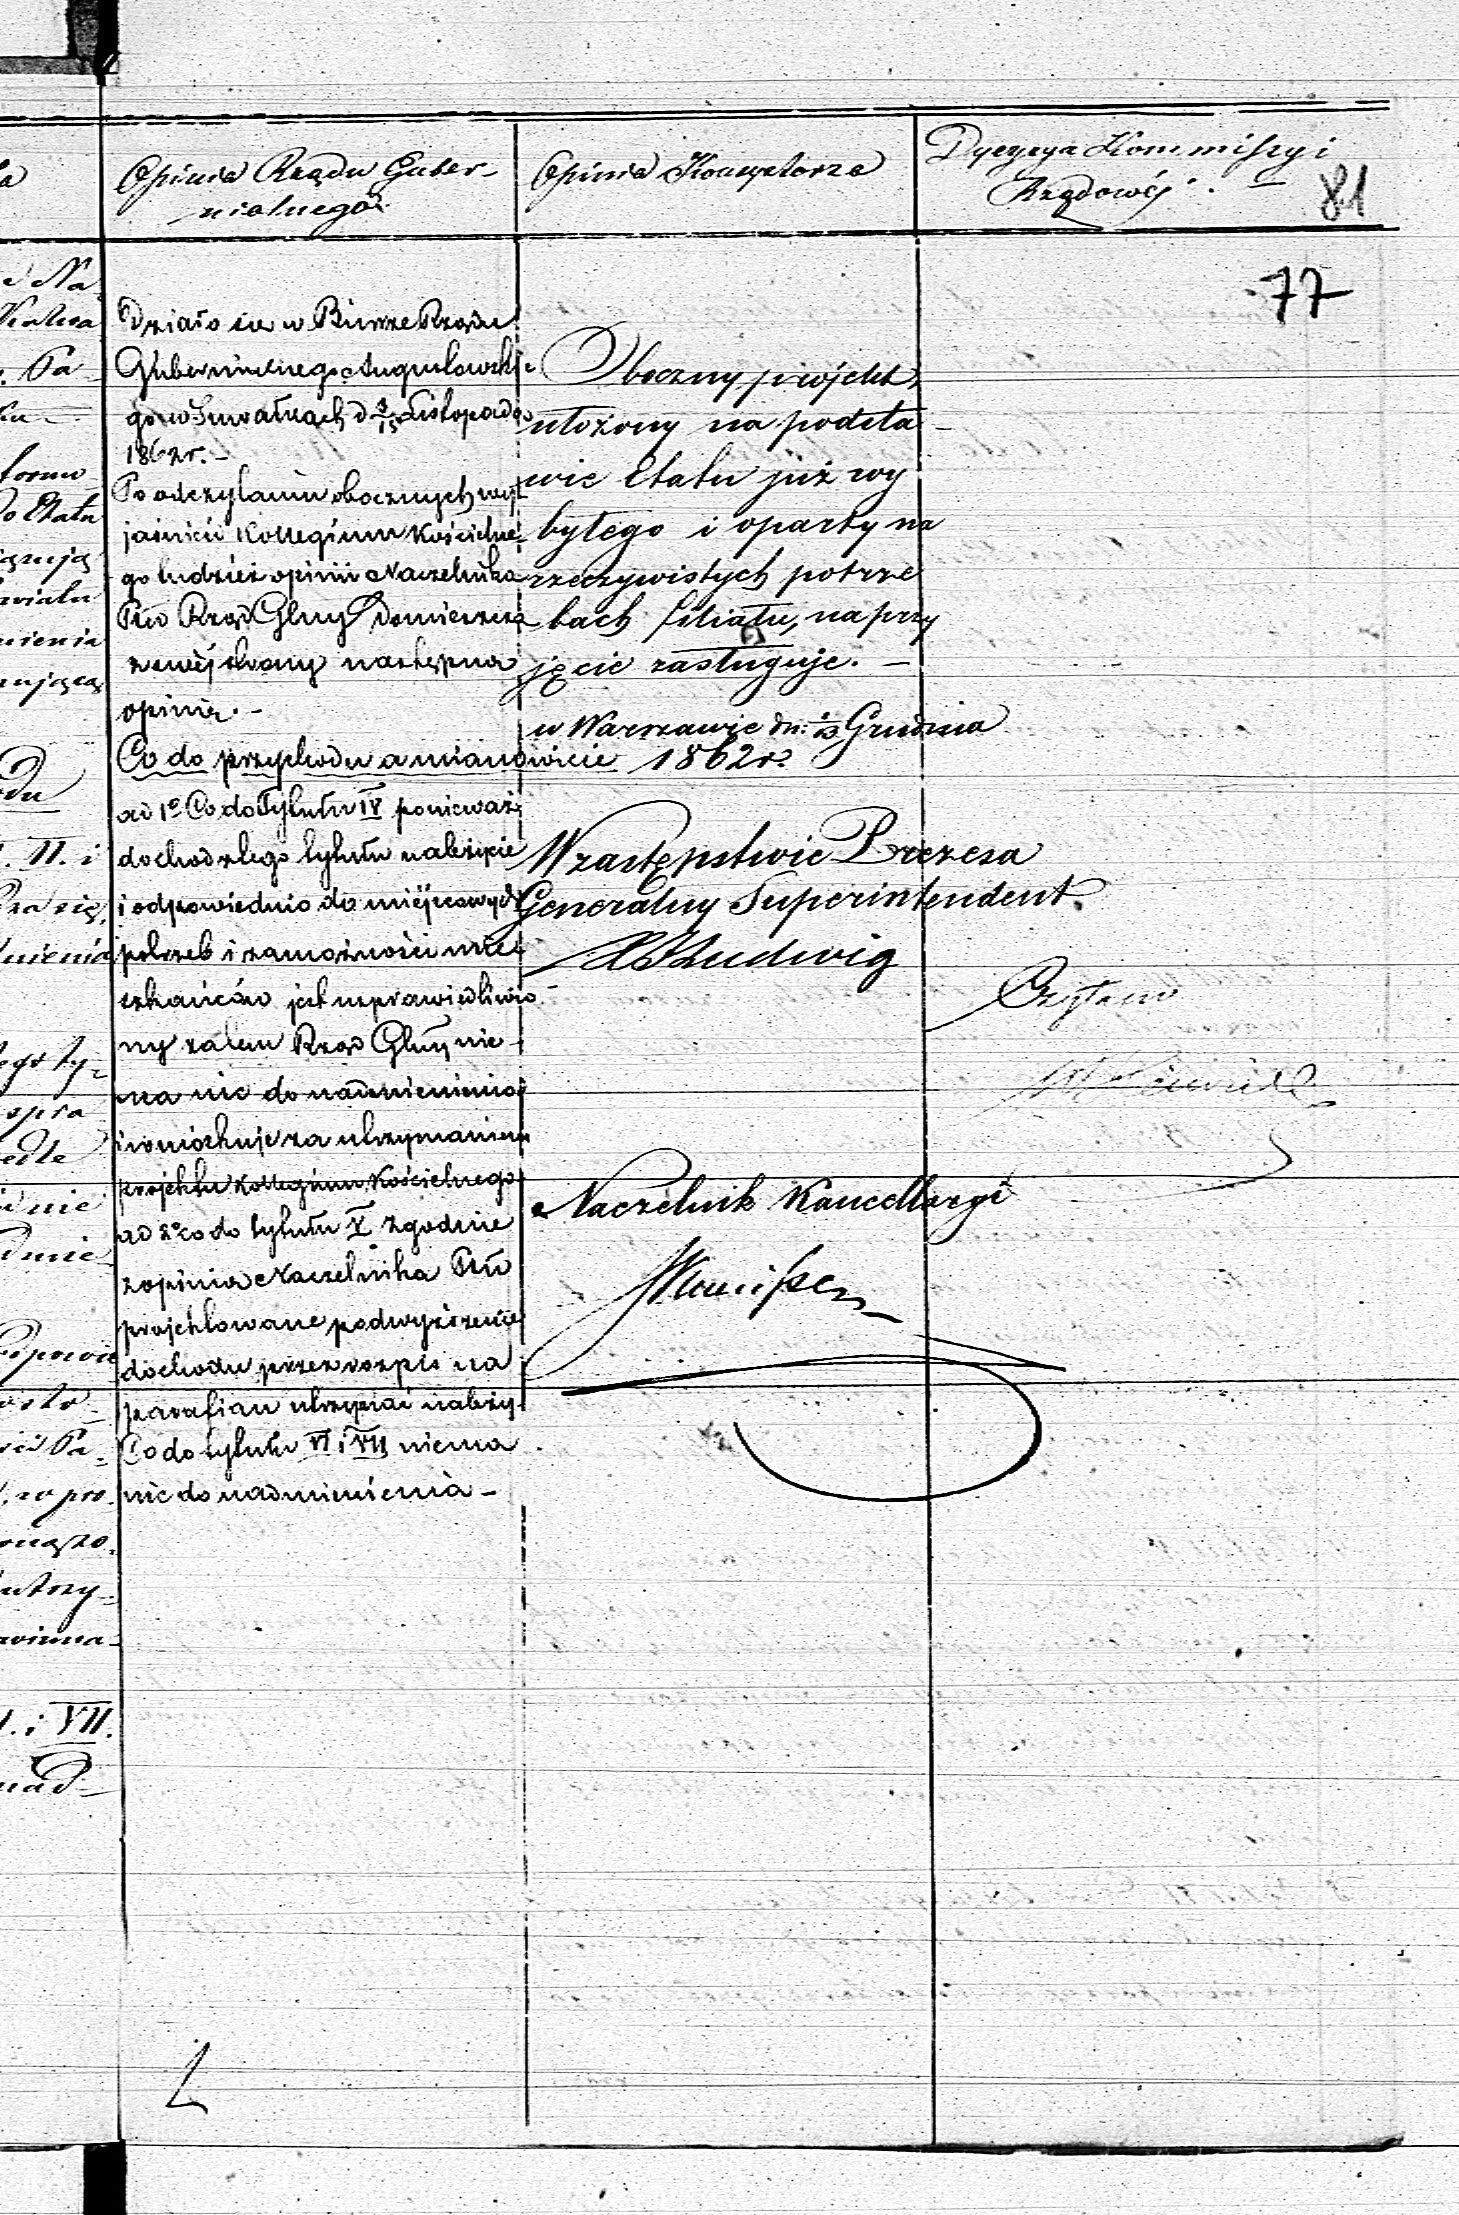 Opinia Rządu Guber-
nialnego.
Opinia Konsystorza
Dyecyzya Kommissyi
Rządowéj.
81
77
Działo się w Biurze Rządu
Gubernialnego Augustowskie
go w Suwałkach d. 3/15 Listopada
1862 r. -
Po odczytaniu obocznych wy
jaśnień Kollegium Kościelne
go tudzież opinii Naczelnika
Ptu Rząd Glny zamieszcza
z swéj strony następną
opinię. -
Co do przychodu a mianowicie
ad 1o Co do Tytułu IV ponieważ
dochod z tego tytułu należycie
i odpowiednio do miéjscowych
potrzeb i zamożności miesz
szkańców jest usprawiedliwio-
ny zatem Rząd Glny nie-
ma nic do nadmienienia
i wnioskuje za utrzymaniem
projektu Kollegium Kościelnego
ad 2o co do tytułu V zgodnie
z opinią Naczelnika Ptu
projektowane podwyższenie
dochodu przez rozpis na
parafian utrzymać należy.
Co do tytułu VI i VII niema
nic do nadmienienia -
Oboczny projekt,
ułożony na podsta-
wie Etatu już wy
byłego i oparty na
rzeczywistych potrze
bach filiału, na przy
jęcie zasługuje. -
w Warszawie dn. Grudnia
1862 r.
W zastępstwie Prezesa
Generalny Superintendent.
Ludwig
Czytano
Naczelnik Kancellaryi
e Na
. Pa
do Etatu
mienia
. II. i
pra
. i VII.
nad-